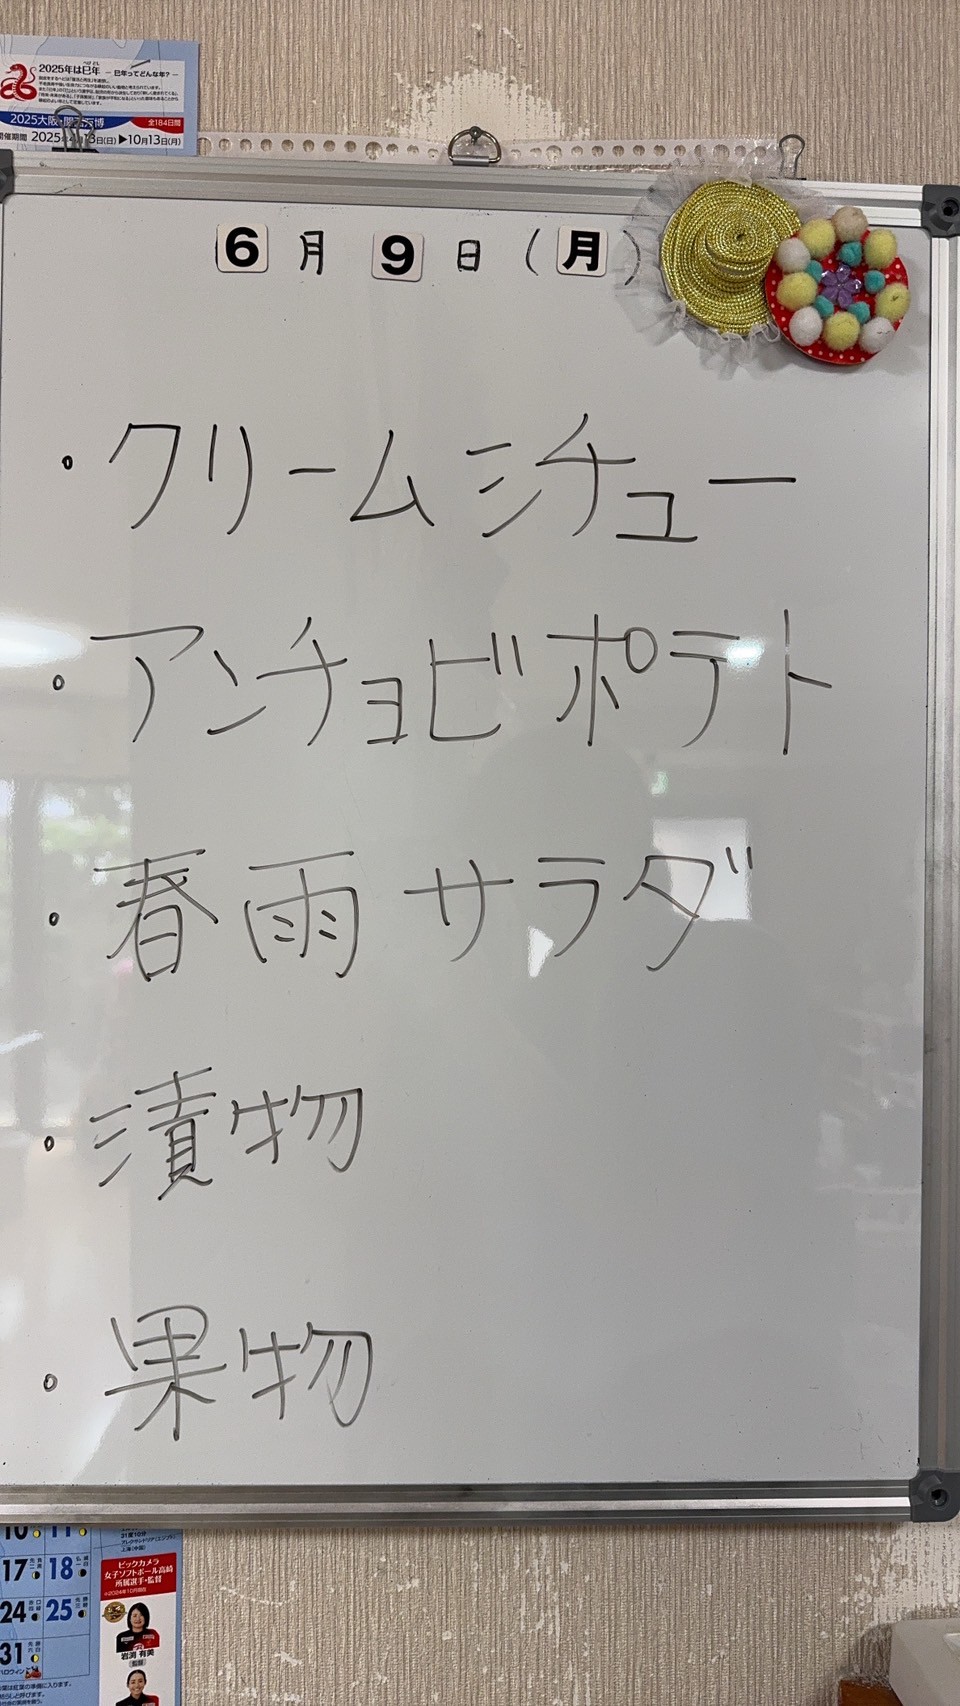 2025年は巳年 ― 巳年ってどんな年? ―
2025大阪・関西万博 全184日間
開催期間 2025年4月13日(日)▶10月13日(月)
6月9日(月)
・クリームシチュー
・アンチョビポテト
・春雨サラダ
・漬物
・果物
10 11
17 18
24 25
31
ハロウィン
ビックカメラ
女子ソフトボール高崎
所属選手・監督
岩渕 有美
監督